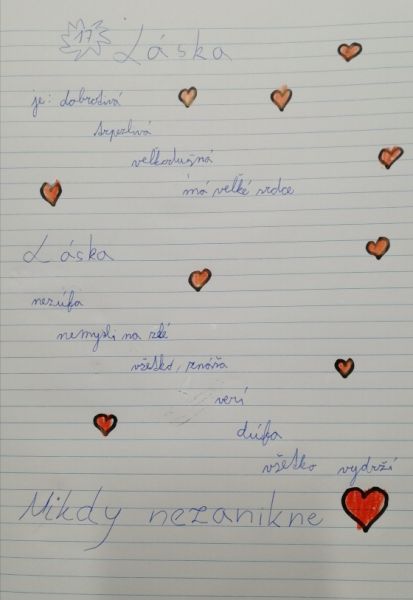 17 Láska
je: dobrotivá
trpezlivá
veľkodušná
má veľké srdce
Láska
nezúfa
nemyslí na zlé
všetko, znáša
verí
dúfa
všetko vydrží
Nikdy nezanikne